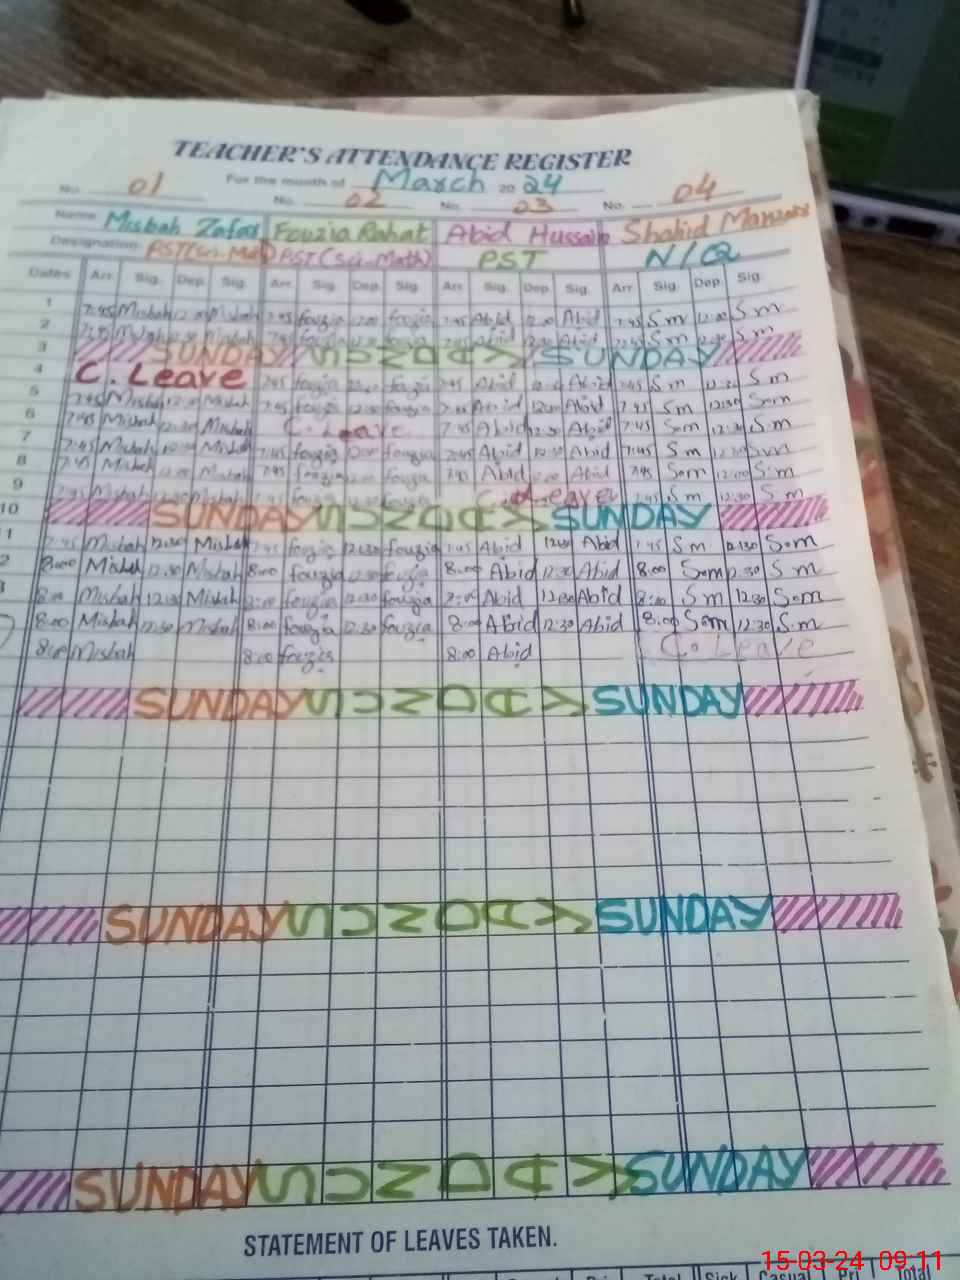 TEACHER'S ATTENDANCE REGISTER
For the month of March 2024
No. 01 No. 02 No. 03 No. 04
Name: Misbah Zafar Fouzia Rahat Abid Hussain Shahid Manzoor
Designation: PST(Sci-Math) PST(Sci-Math) PST N/Q
Dates Arr. Sig. Dep. Sig. Arr. Sig. Dep. Sig. Arr. Sig. Dep. Sig. Arr. Sig. Dep. Sig.
1 7:45 Misbah 12:00 Misbah 7:45 fouzia 12:00 fouzia 7:45 Abid 12:00 Abid 7:45 Sm 12:00 Sm
2 7:45 Misbah Misbah 7:45 fouzia fouzia 7:45 Abid Abid 7:45 Sm 12:30 Sm
3 SUNDAY SUNDAY SUNDAY
4 C. Leave 7:45 fouzia fouzia 7:45 Abid Abid 7:45 Sm 12:30 Sm
5 7:45 Misbah 12:30 Misbah 7:45 fouzia 12:30 fouzia 7:45 Abid Abid 7:45 Sm 12:30 Som
6 7:45 Misbah 12:30 Misbah C. Leave 7:45 Abid 12:30 Abid 7:45 Som 12:30 Sm
7 7:45 Misbah Misbah 7:45 fouzia fouzia 7:45 Abid 12:30 Abid 7:45 Sm 12:30 Sm
8 7:45 Misbah 12:00 Misbah 7:45 fouzia fouzia 7:45 Abid Abid 7:45 Som 12:00 S.m
9 7:45 Misbah Misbah 7:45 fouzia fouzia C. Leave 7:45 Sm 12:30 Sm
10 SUNDAY SUNDAY SUNDAY
1 7:45 Misbah 12:30 Misbah 7:45 fouzia 12:30 fouzia 7:45 Abid 12:30 Abid 7:45 Sm 12:30 Som
2 8:00 Misbah 12:30 Misbah 8:00 fouzia 12:30 fouzia 8:00 Abid 12:30 Abid 8:00 Som 12:30 Sm
3 8:00 Misbah 12:30 Misbah 8:00 fouzia 12:30 fouzia 8:00 Abid 12:30 Abid 8:00 Sm 12:30 Som
8:00 Misbah 12:30 Misbah 8:00 fouzia 12:30 fouzia 8:00 Abid 12:30 Abid 8:00 Som 12:30 S.m
8:00 Misbah 8:00 fouzia 8:00 Abid C. Leave
SUNDAY SUNDAY SUNDAY
SUNDAY SUNDAY SUNDAY
SUNDAY SUNDAY SUNDAY
STATEMENT OF LEAVES TAKEN.
Total Sick Casual Pri Total
15-03-24 09:11